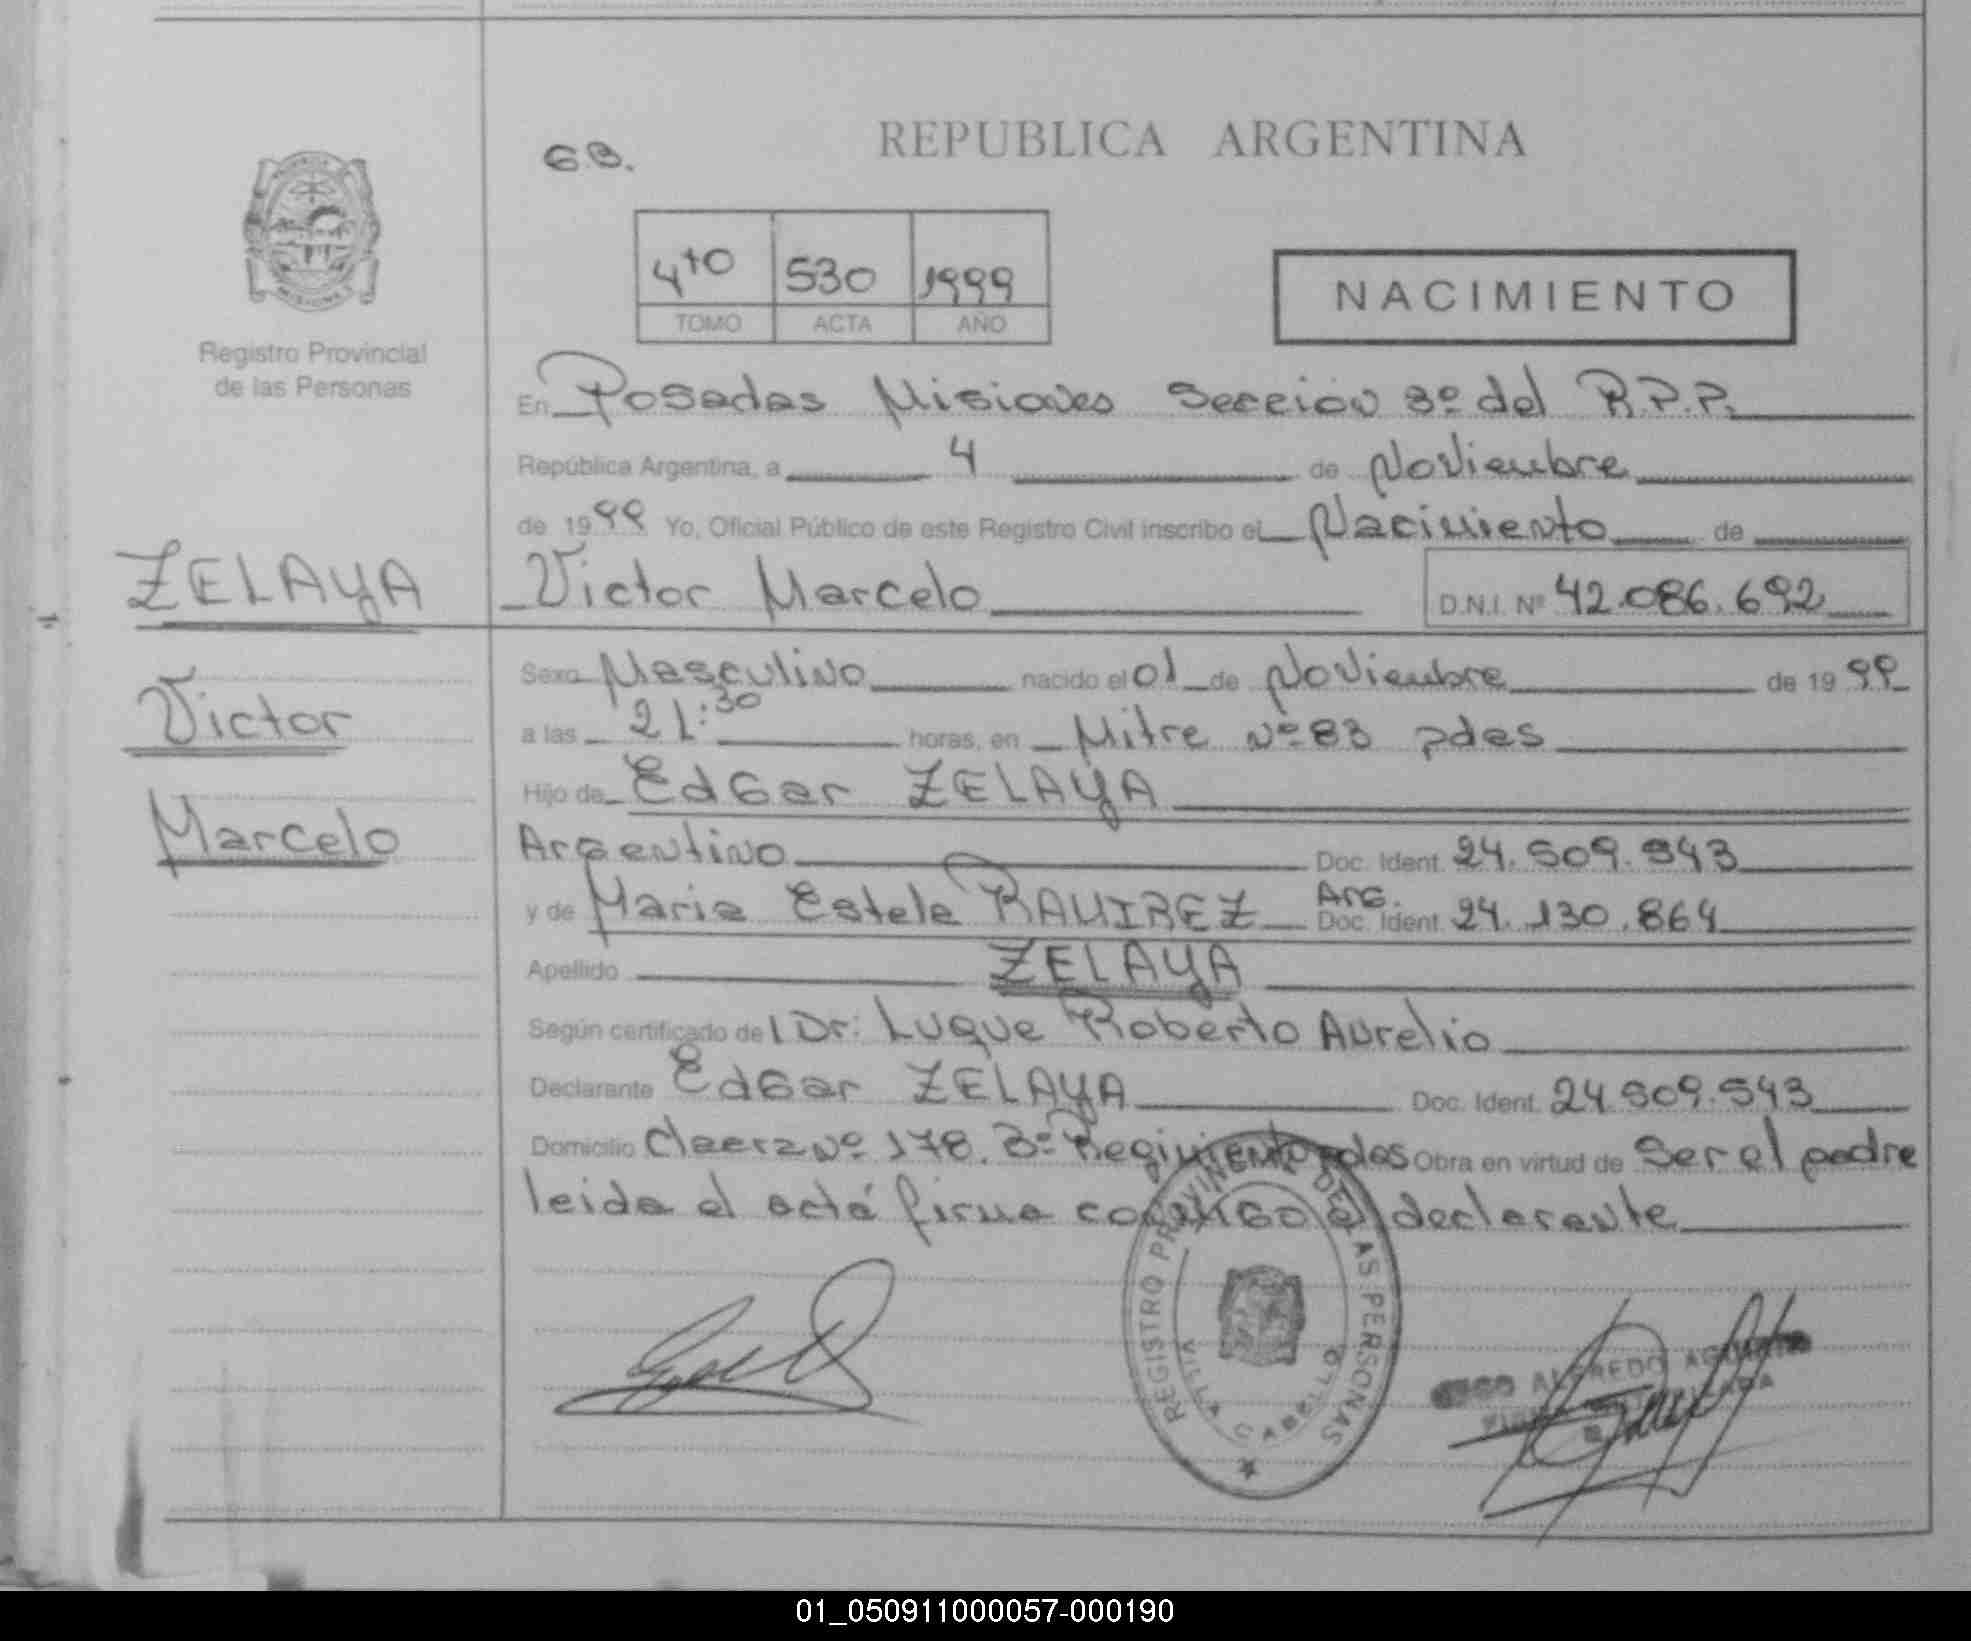 G.B.
REPUBLICA ARGENTINA
4to 530 1999
TOMO ACTA AÑO
NACIMIENTO
MISIONES
Registro Provincial
de las Personas
En Posadas Misiones Sección 3º del R.P.P.
República Argentina, a 4 de Noviembre
de 1999 Yo, Oficial Público de este Registro Civil inscribo el Nacimiento de
ZELAYA
Victor Marcelo D.N.I. Nº 42.086.692
Victor
Marcelo
Sexo Masculino nacido el 01 de Noviembre de 1999
a las 21:30 horas, en Mitre Nº 83 pdas
Hijo de Edgar ZELAYA
Argentino Doc. Ident. 24.509.543
y de Maria Estela RAMIREZ Arg. Doc. Ident. 24.130.864
Apellido ZELAYA
Según certificado del Dr: Luque Roberto Aurelio
Declarante Edgar ZELAYA Doc. Ident. 24.509.543
Domicilio Nº 178. Bº Regimiento pdas Obra en virtud de Ser el padre
leida el acta firma conmigo el declarante
REGISTRO PROVINCIAL DE LAS PERSONAS
VILLA CABELLO
ALFREDO
01_050911000057-000190